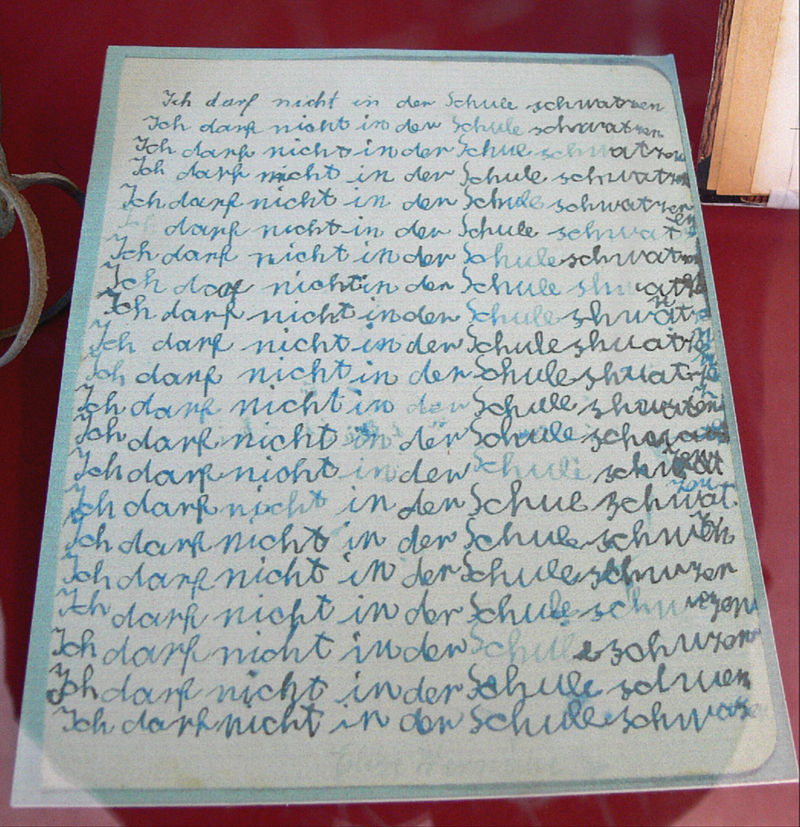 Ich darf nicht in der Schule schwatzen
Ich darf nicht in der Schule schwatzen
Ich darf nicht in der Schue schwatzen
Ich darf nicht in der Schule schwatzen
Ich darf nicht in der Schule schwatzen
Ich darf nicht in der Schule schwatzen
Ich darf nicht in der Schule schwatzen
Ich darf nicht in der Schule shwatzen
Ich darf nicht in der Schule shwatzn
Ich darf nicht in der Schule shuatzen
Ich darf nicht in der Schule shuatzen
Ich darf nicht in der Schule shwaten
Ich darf nicht in der Schule
Ich darf nicht in der Schule schwat
zen
Ich darf nicht in der Schue schwat
Ich darf nicht in der Schule
Ich darf nicht in der Schule schwzen
Ich darf nicht in der Schule
Ich darf nicht in der Schule schwzen
Ich darf nicht in der Schule
Ich darf nicht in der Schule